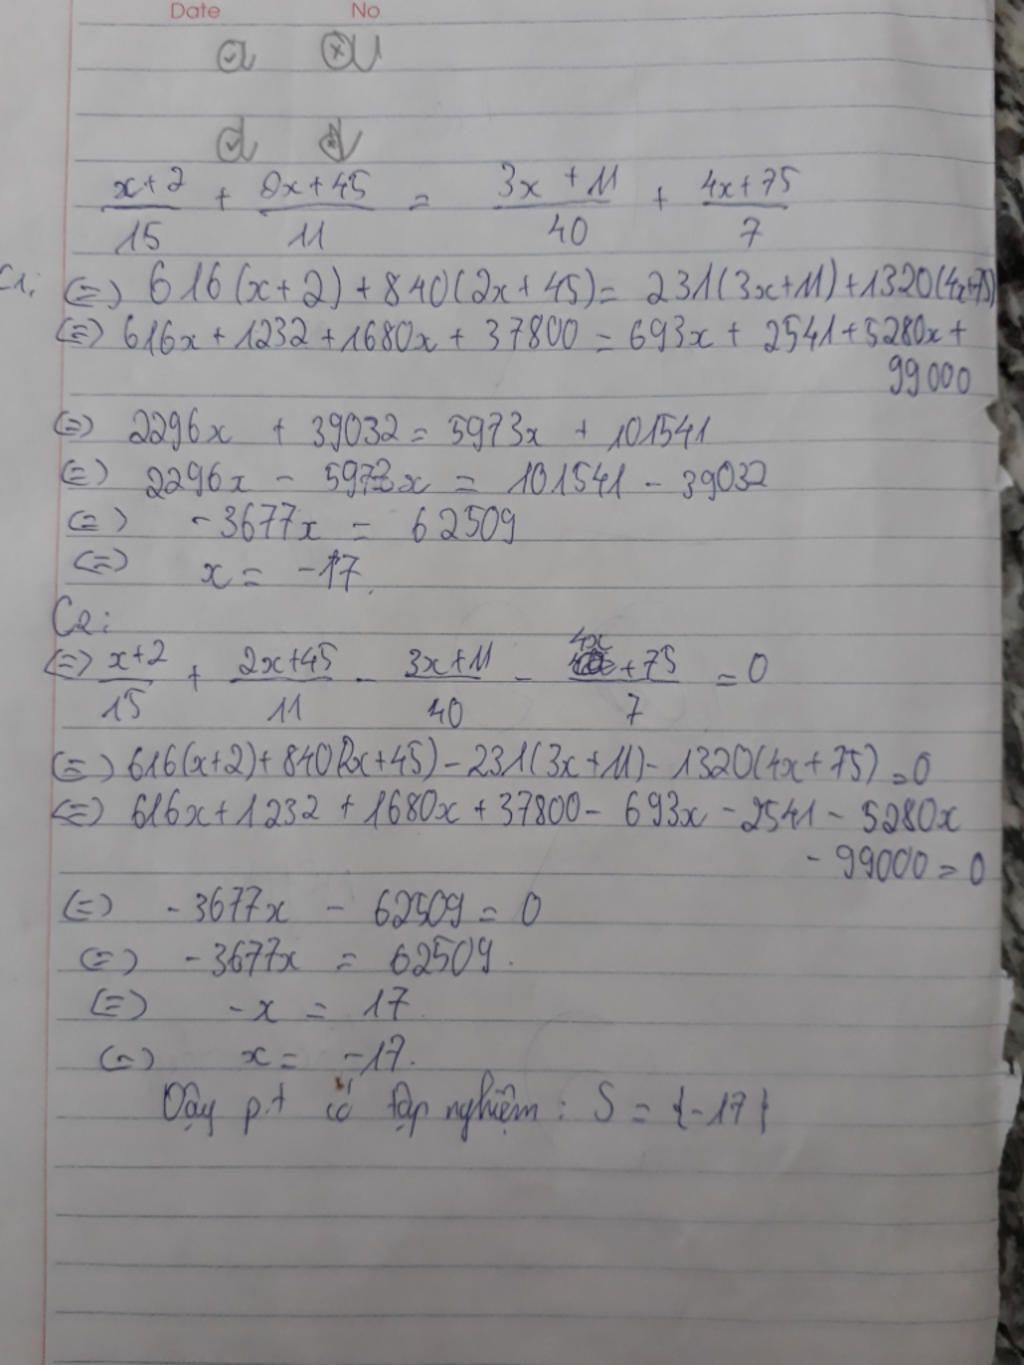 Date No
x+2/15 + 2x+45/11 = 3x+11/40 + 4x+75/7
C1: (=) 616(x+2)+840(2x+45)= 231(3x+11)+1320(4x+75)
(=) 616x+1232+1680x+37800=693x+2541+5280x+
99000
(=) 2296x + 39032 = 5973x + 101541
(=) 2296x - 5973x = 101541 - 39032
(=) -3677x = 62509
(=) x = -17.
C2:
(=) x+2/15 + 2x+45/11 - 3x+11/40 - 4x+75/7 = 0
(=) 616(x+2)+840(2x+45)-231(3x+11)-1320(4x+75)=0
(=) 616x+1232+1680x+37800-693x-2541-5280x
-99000=0
(=) -3677x - 62509 = 0
(=) -3677x = 62509.
(=) -x = 17
(=) x = -17.
Vậy p.t có tập nghiệm: S = {-17}